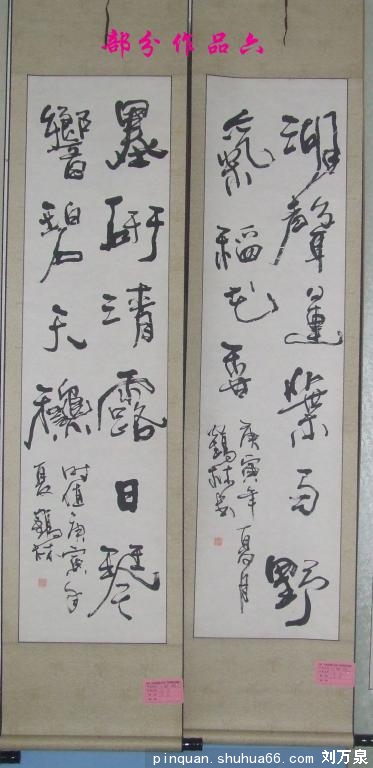 部分作品六
湖聲蓮葉雨野
氣稻花香
庚寅年夏月
鶴林書
墨研清露日琴
響碧天龝
时值庚寅年
夏鶴林
pinquan.shuhua66.com 刘万泉